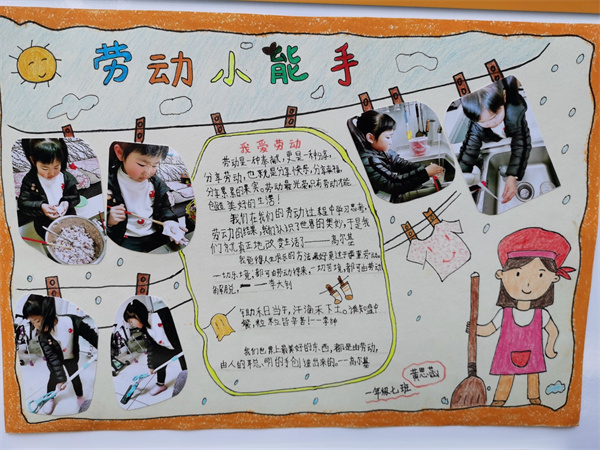 劳动小能手
我爱劳动
劳动是一种奉献,更是一种分享,
分享劳动,也就是分享快乐,分享幸福,
分享累累的果实。劳动最光荣只有劳动才能
创造美好的生活!
我们在我们的劳动过程中学习思考,
劳动的结果,我们认识了世界的奥妙,于是我
们就真正地改变生活了——高尔基
我觉得人生求乐的方法,最好莫过于尊重劳动。
一切乐境,都可由劳动得来,一切苦境,都可由劳动
解脱,——李大钊
锄禾日当午,汗滴禾下土。谁知盘中
餐,粒粒皆辛苦!——李绅
我们世界上最美好的东西,都是由劳动,
由人的手创造出来的。——高尔基
一年级七班
黄思